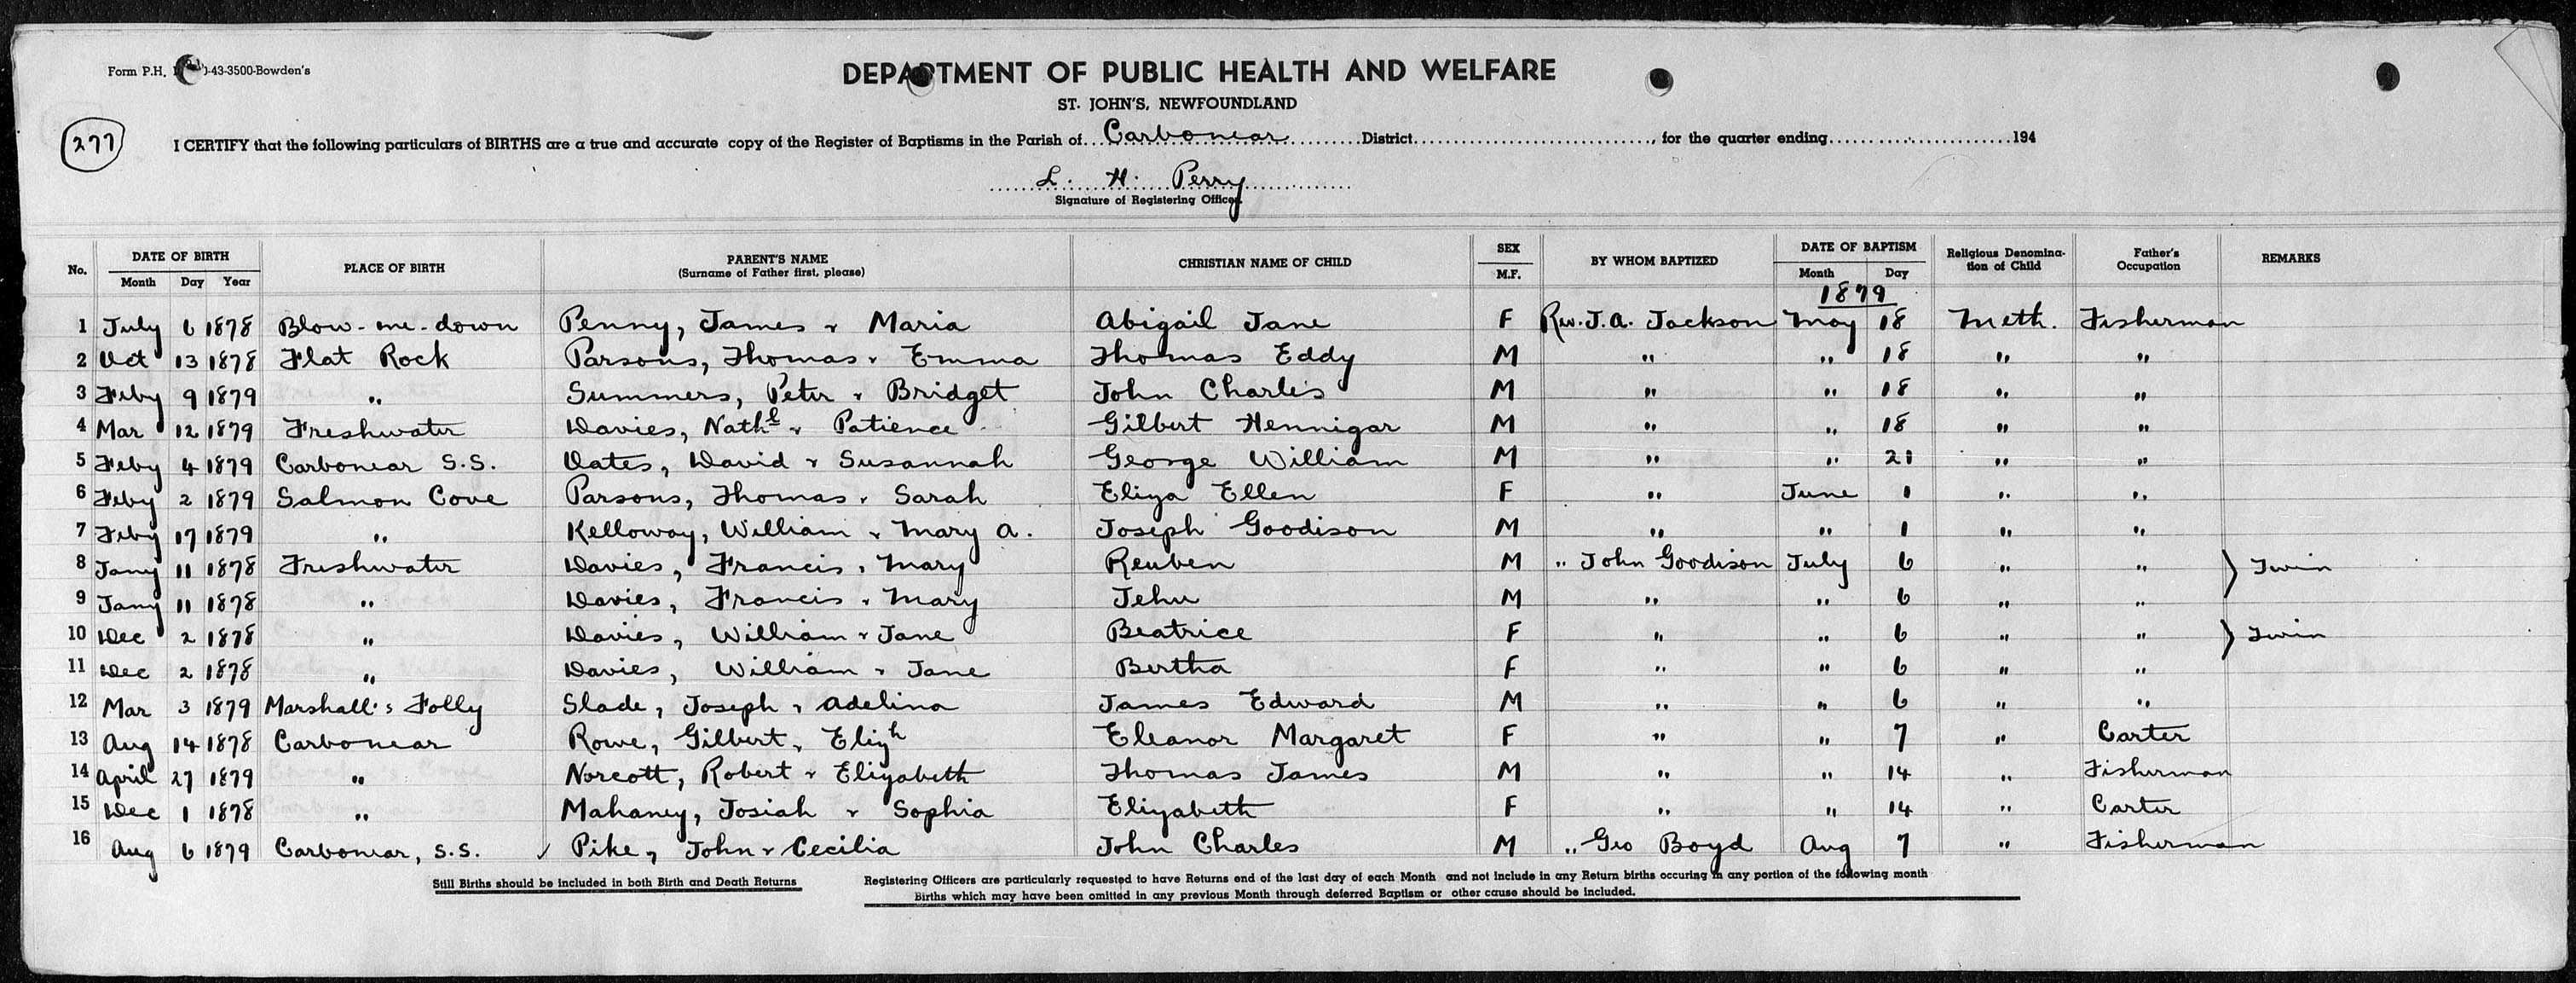 Form P.H. 0-43-3500-Bowden's
DEPARTMENT OF PUBLIC HEALTH AND WELFARE
ST. JOHN'S, NEWFOUNDLAND
277
I CERTIFY that the following particulars of BIRTHS are a true and accurate copy of the Register of Baptisms in the Parish of Carbonear District for the quarter ending 194
L. H. Perry
Signature of Registering Officer
No. DATE OF BIRTH PLACE OF BIRTH PARENT'S NAME CHRISTIAN NAME OF CHILD SEX BY WHOM BAPTIZED DATE OF BAPTISM Religious Denomination of Child Father's Occupation REMARKS
Month Day Year (Surname of Father first, please) M.F. Month Day
1879
1 July 6 1878 Blow-me-down Penny, James & Maria Abigail Jane F Rev. J.A. Jackson May 18 Meth. Fisherman
2 Oct 13 1878 Flat Rock Parsons, Thomas & Emma Thomas Eddy M " " 18 " "
3 Feby 9 1879 " Summers, Peter & Bridget John Charles M " " 18 " "
4 Mar 12 1879 Freshwater Davies, Nathl & Patience Gilbert Hennigar M " " 18 " "
5 Feby 4 1879 Carbonear S.S. Oates, David & Susannah George William M " " 21 " "
6 Feby 2 1879 Salmon Cove Parsons, Thomas & Sarah Eliza Ellen F " June 1 " "
7 Feby 17 1879 " Kelloway, William & Mary A. Joseph Goodison M " " 1 " "
8 Jany 11 1878 Freshwater Davies, Francis & Mary Reuben M " John Goodison July 6 " " } Twin
9 Jany 11 1878 " Davies, Francis & Mary Jehu M " " 6 " "
10 Dec 2 1878 " Davies, William & Jane Beatrice F " " 6 " " } Twin
11 Dec 2 1878 " Davies, William & Jane Bertha F " " 6 " "
12 Mar 3 1879 Marshall's Folly Slade, Joseph & Adelina James Edward M " " 6 " "
13 Aug 14 1878 Carbonear Rowe, Gilbert & Elizh Eleanor Margaret F " " 7 " Carter
14 April 27 1879 " Norcott, Robert & Elizabeth Thomas James M " " 14 " Fisherman
15 Dec 1 1878 " Mahaney, Josiah & Sophia Elizabeth F " " 14 " Carter
16 Aug 6 1879 Carbonear, S.S. ✓ Pike, John & Cecilia John Charles M " Geo Boyd Aug 7 " Fisherman
Still Births should be included in both Birth and Death Returns
Registering Officers are particularly requested to have Returns end of the last day of each Month and not include in any Return births occuring in any portion of the following month
Births which may have been omitted in any previous Month through deferred Baptism or other cause should be included.